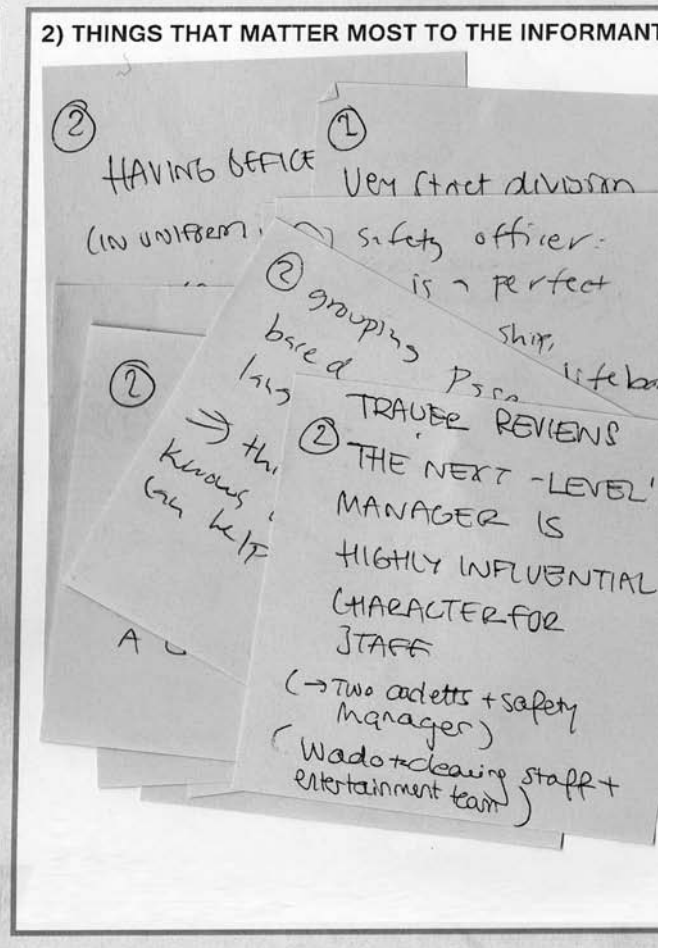 2) THINGS THAT MATTER MOST TO THE INFORMANT
2
HAVING OFFICE
(IN UNIFORM
2
Very strict division
safety officer:
is a perfect
ship,
lifebo
2 grouping
based
lang
⇒ thi
knows
can help
2
A
TRAVEL REVIEWS
2 THE NEXT-LEVEL'
MANAGER IS
HIGHLY INFLUENTIAL
CHARACTER FOR
STAFF
(→ Two cadetts + safety
manager)
(Wado + cleaning staff +
entertainment team)